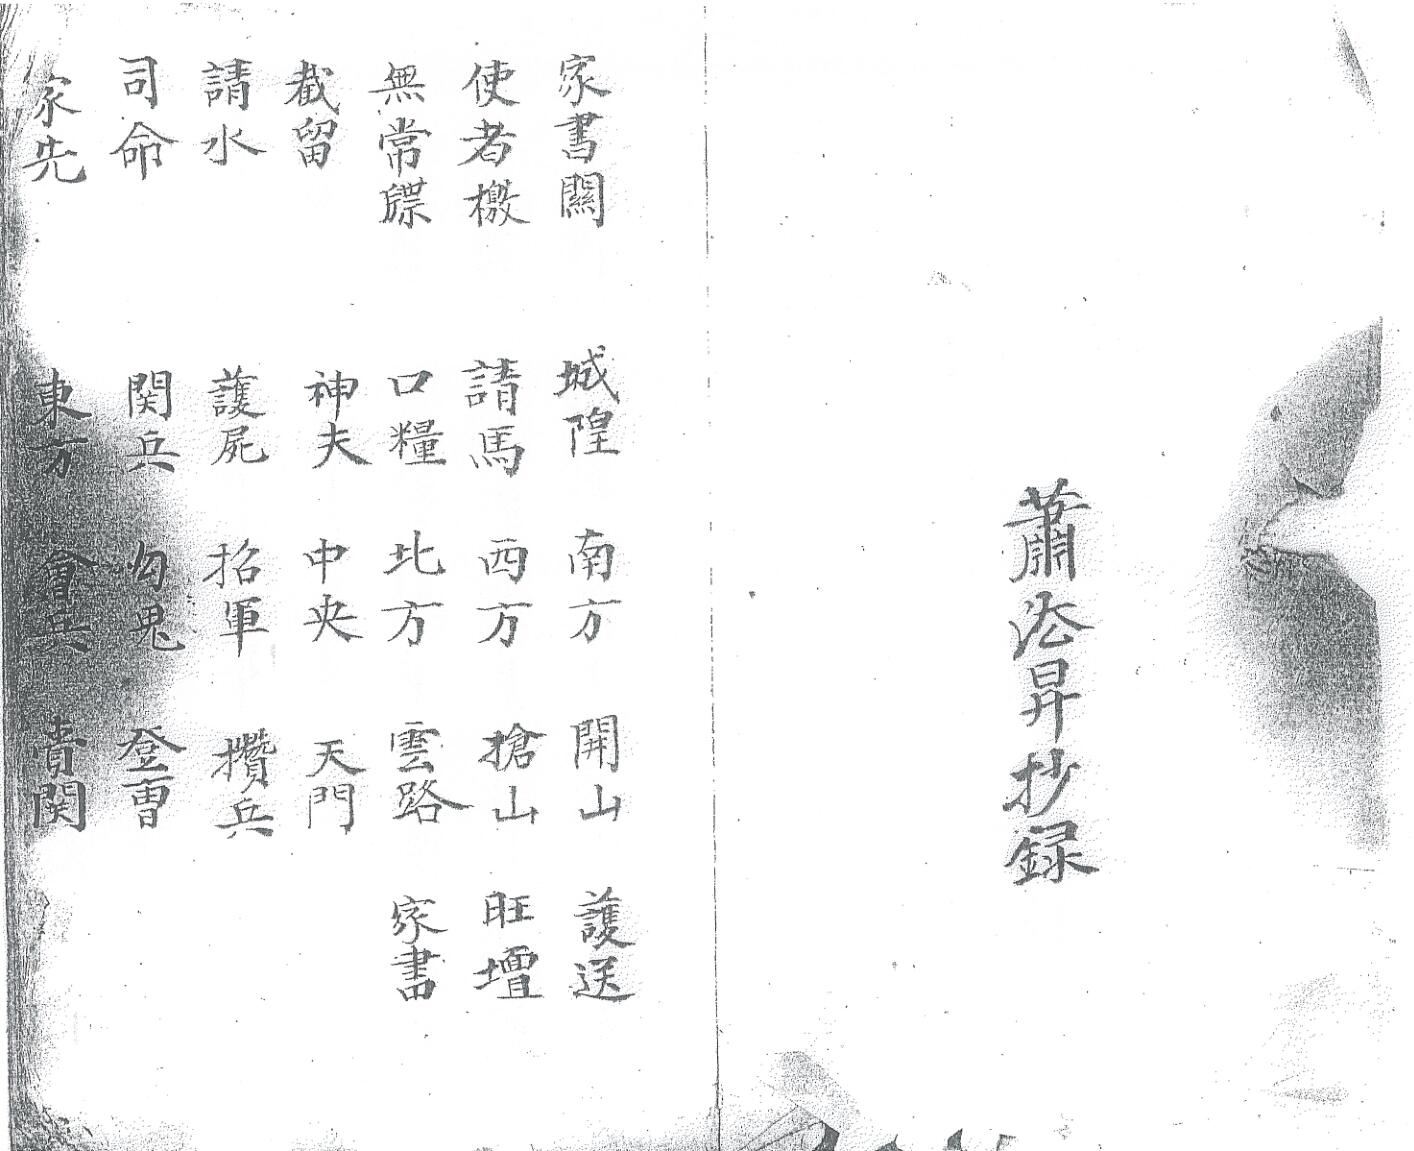 蕭法昇抄録
家書關 城隍 南方 開山 護送
使者檄 請馬 西方 搶山 旺壇
無常牒 口糧 北方 雲路 家書
截留 神夫 中央 天門
請水 護屍 招軍 攢兵
司命 関兵 勾鬼 登曹
家先 東方 會兵 賣関